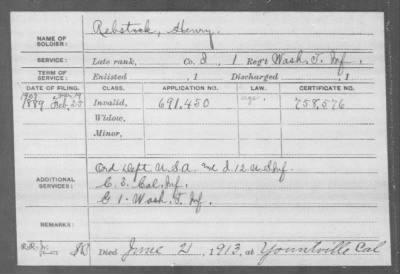 NAME OF SOLDIER: Rebstock, Henry.
SERVICE: Late rank, Co. D, 1 Reg't Wash. T. Inf.
TERM OF SERVICE: Enlisted , 1 Discharged , 1
DATE OF FILING. CLASS. APPLICATION NO. LAW. CERTIFICATE NO.
1907
1889 Feb. 25 Invalid, 691.450 age. 758,576
Widow,
Minor,
ADDITIONAL SERVICES: Ord Dept U.S.A. and D. 12 U.S. Inf.
C. E. Cal. Inf.
G 1. Wash. T. Inf.
REMARKS:
Died June 21, 1913, at Yountville Cal